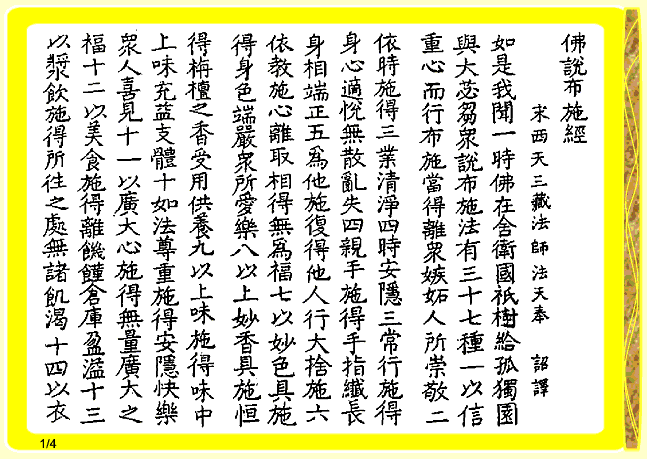 佛說布施經
宋西天三藏法師法天奉　詔譯
如是我聞一時佛在舍衛國祇樹給孤獨園
與大苾芻眾說布施法有三十七種一以信
重心而行布施當得離眾嫉妬人所崇敬二
依時施得三業清淨四時安隱三常行施得
身心適悅無散亂失四親手施得手指纖長
身相端正五為他施復得他人行大捨施六
依教施心離取相得無為福七以妙色具施
得身色端嚴眾所愛樂八以上妙香具施恒
得栴檀之香受用供養九以上味施得味中
上味充益支體十如法尊重施得安隱快樂
眾人喜見十一以廣大心施得無量廣大之
福十二以美食施得離饑饉倉庫盈溢十三
以漿飲施得所往之處無諸飢渴十四以衣
1/4